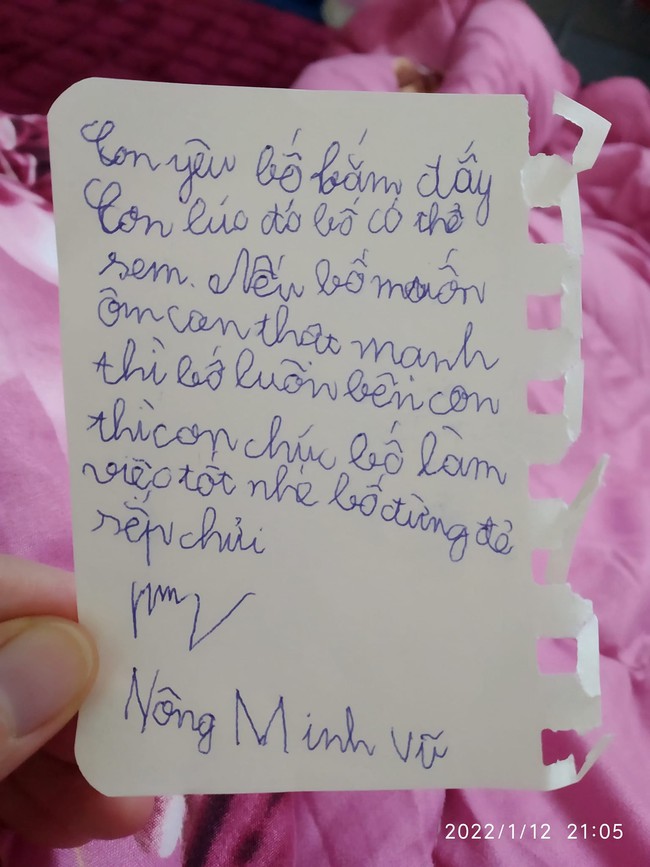 Con yêu bố bắm đấy
Con lúc đó bố có thể
sem. Nếu bố muốn
ôm con thât manh
thì bố luôn bên con
thì con chúc bố làm
việc tốt nhé bố đừng để
sếp chửi
Nông Minh Vũ
2022/1/12 21:05